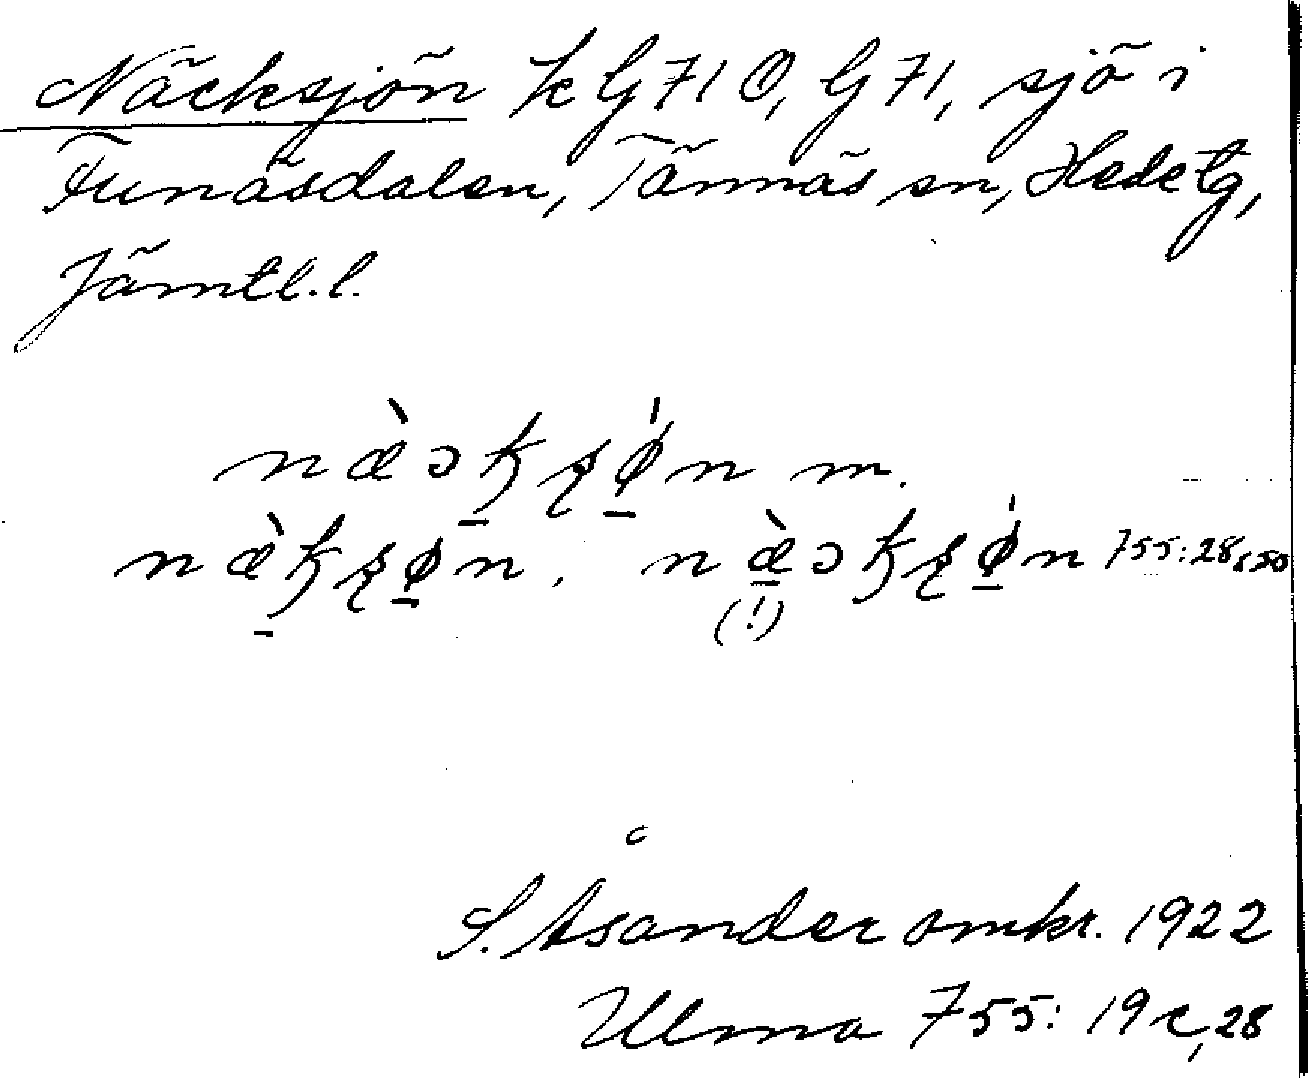 Näcksjön k G 71 Ö, G 71, sjö i
Funäsdalen, Tännäs sn, Hede tg,
Jämtl. l.
næ̀ɔꞣʂǿn m.
næ̀ꞣʂøn. næ̀ɔꞣʂǿn 755:28, s 50
(!)
S. Åsander omkr. 1922
Ulma 755: 19 c, 28